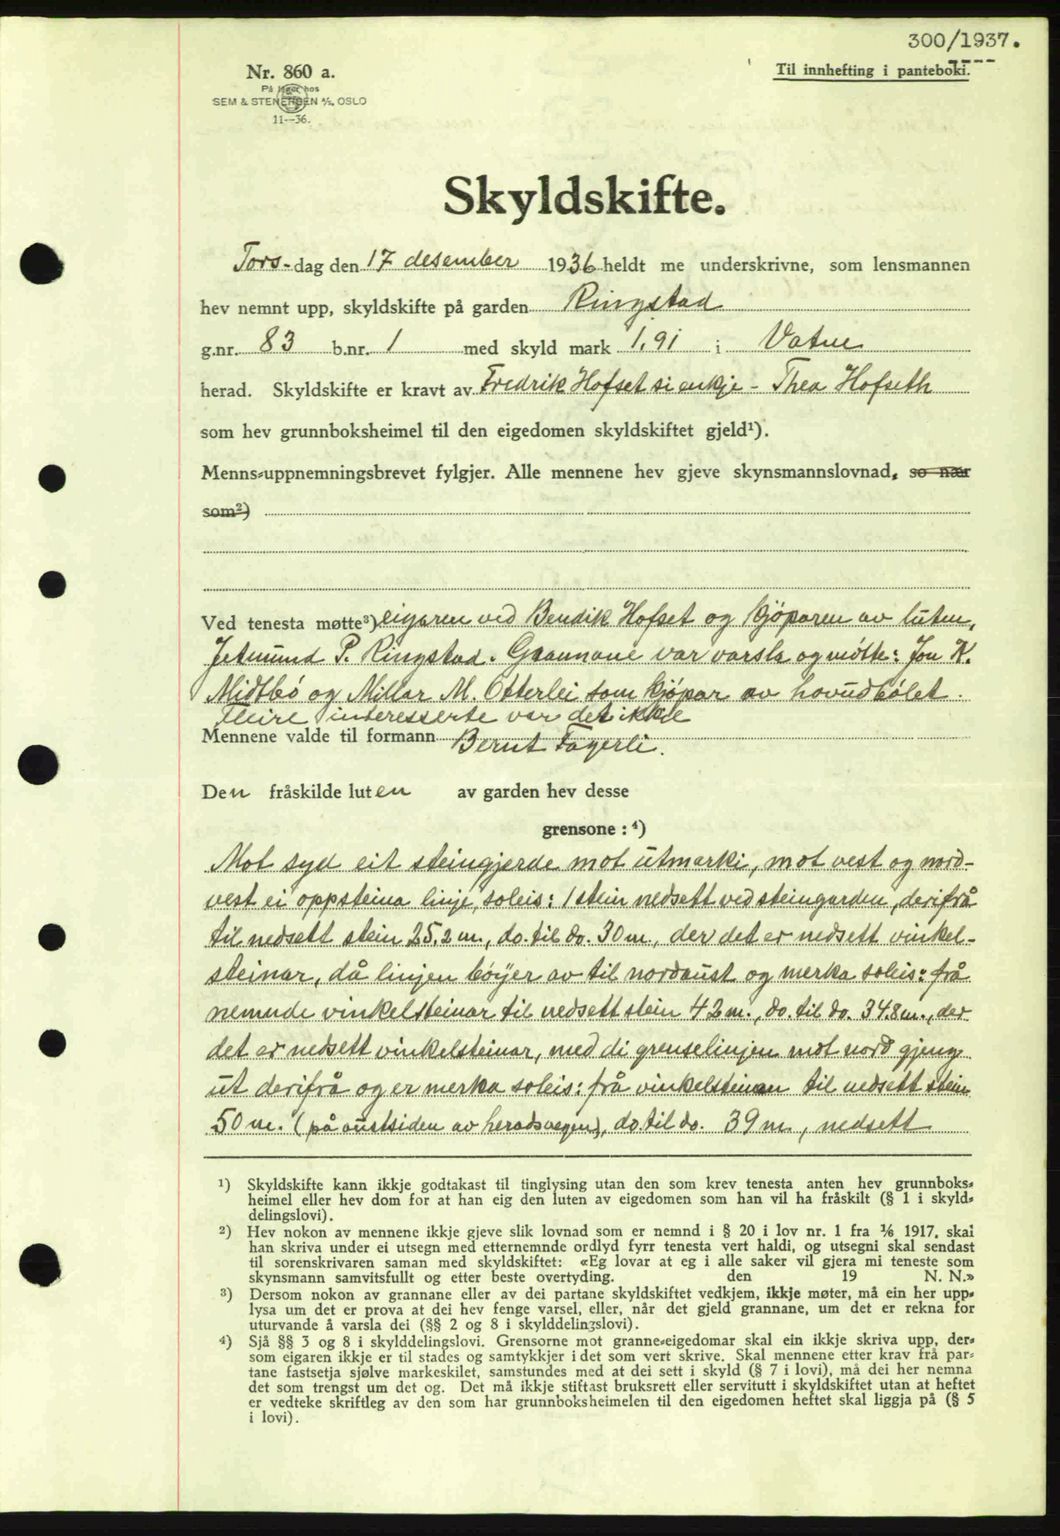 300/1937.
Nr. 860 a.
Til innhefting i panteboki.
På lager hos
SEM & STENERSEN A/S, OSLO
11—36.
Skyldskifte.
Tors-dag den 17 desember 1936 heldt me underskrivne, som lensmannen
hev nemnt upp, skyldskifte på garden Ringstad
g.nr. 83 b.nr. 1 med skyld mark 1,91 i Vatne
herad. Skyldskifte er kravt av Fredrik Hofset si enkje - Thea Hofseth
som hev grunnboksheimel til den eigedomen skyldskiftet gjeld¹).
Menns-uppnemningsbrevet fylgjer. Alle mennene hev gjeve skynsmannslovnad, so nær
som²)
Ved tenesta møtte³) eigaren ved Bendik Hofset og kjøparen av luten,
Jetmund P. Ringstad. Grannane var varsla og møtte: Jon K.
Midtbø og Millar M. Otterlei som kjøpar av hovudbølet.
Fleire interesserte var det ikkje
Mennene valde til formann Bernt Fagerli.
Den fråskilde luten av garden hev desse
grensone : ⁴)
Mot syd eit steingjerde mot utmarki, mot vest og nord-
vest ei oppsteina linje, soleis: 1 stein nedsett ved steingarden, derifrå
til nedsett stein 25,2 m., do. til do. 30 m., der det er nedsett vinkel-
steinar, då linjen bøyer av til nordaust og merka soleis: frå
nemnde vinkelsteinar til nedsett stein 42 m., do. til do. 34.8 m., der
det er nedsett vinkelsteinar, med di grenselinjen mot nord gjeng
ut derifrå og er merka soleis: frå vinkelsteinen til nedsett stein
50 m. (på austsiden av heradsvegen), do. til do. 39 m, nedsett
¹) Skyldskifte kann ikkje godtakast til tinglysing utan den som krev tenesta anten hev grunnboks-
heimel eller hev dom for at han eig den luten av eigedomen som han vil ha fråskilt (§ 1 i skyld-
delingslovi).
²) Hev nokon av mennene ikkje gjeve slik lovnad som er nemnd i § 20 i lov nr. 1 fra ¹/₆ 1917, skal
han skriva under ei utsegn med etternemnde ordlyd fyrr tenesta vert haldi, og utsegni skal sendast
til sorenskrivaren saman med skyldskiftet: «Eg lovar at eg i alle saker vil gjera mi teneste som
skynsmann samvitsfullt og etter beste overtyding. den 19 N. N.»
³) Dersom nokon av grannane eller av dei partane skyldskiftet vedkjem, ikkje møter, må ein her upp-
lysa um det er prova at dei hev fenge varsel, eller, når det gjeld grannane, um det er rekna for
uturvande å varsla dei (§§ 2 og 8 i skylddelingslovi).
⁴) Sjå §§ 3 og 8 i skylddelingslovi. Grensorne mot granne-eigedomar skal ein ikkje skriva upp, der-
som eigaren ikkje er til stades og samtykkjer i det som vert skrive. Skal mennene etter krav frå par-
tane fastsetja sjølve markeskilet, samstundes med at dei sett i skyld (§ 7 i lovi), må dei her nemna
det som trengst um det og. Det må ikkje stiftast bruksrett eller servitutt i skyldskiftet utan at heftet
er vedteke skriftleg av den som har grunnboksheimelen til den eigedomen heftet skal liggja på (§ 5
i lovi).